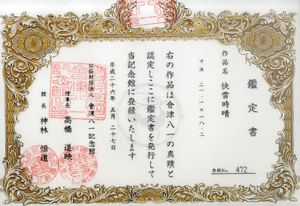 鑑定書
作品名
快雪時晴
寸法
右の作品は會津八一の真蹟と
認定しここに鑑定書を発行して
当記念館に登録いたします
平成二十六年 五月 二十七日
公益財団法人 會津八一記念館
理事長 高橋 道映
館長 神林 恒道
登録No. 472